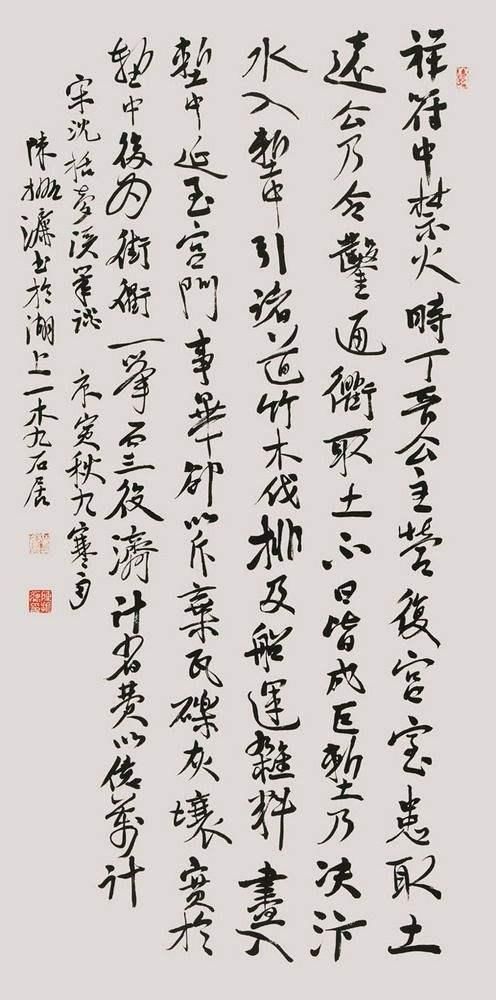 祥符中禁火時丁晉公主營復宮室患取土
遠公乃令鑿通衢取土不日皆成巨塹乃決汴
水入塹中引諸道竹木伐排及船運雜料盡入
塹中延至宮門事畢卻以斥棄瓦礫灰壤實於
塹中復為街衢一舉而三役濟計省費以億萬計
宋沈括夢溪筆談 庚寅秋九寒
陳振濂書於湖上一木九石居